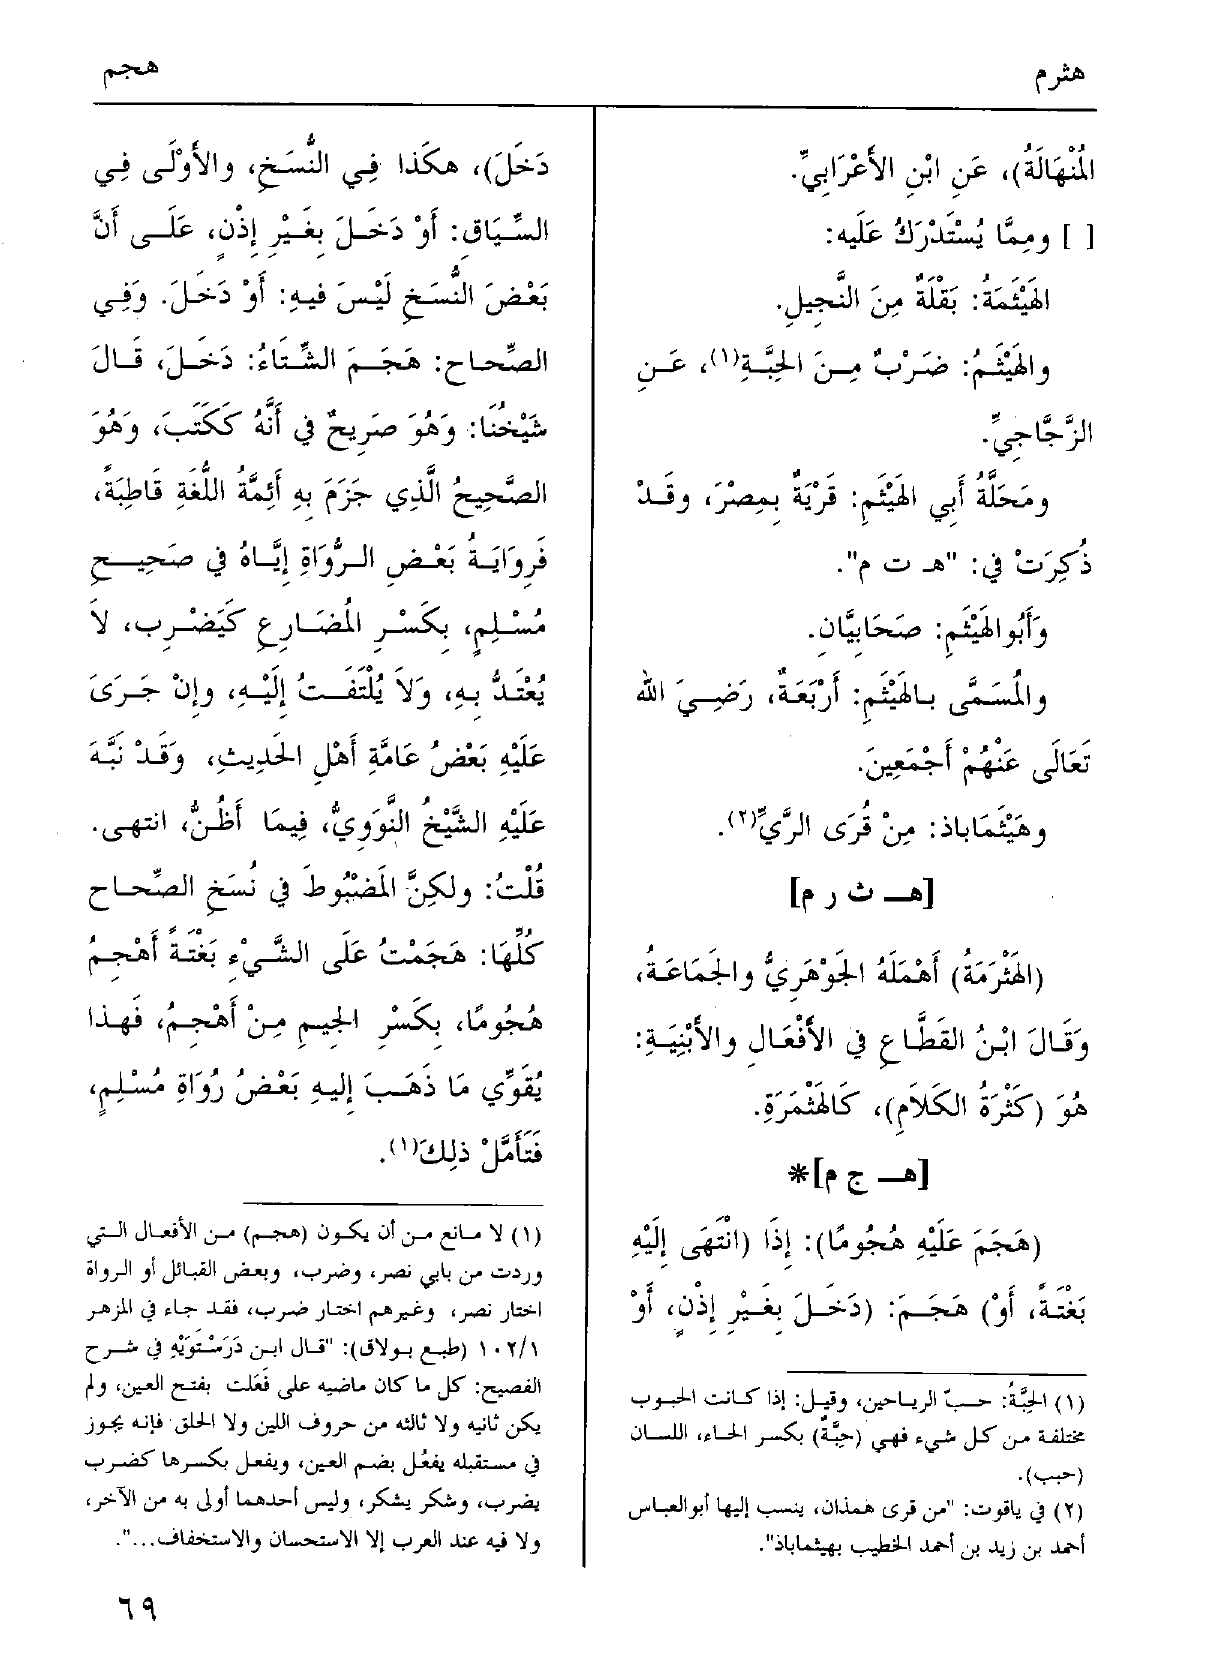 هثرم
هجم
المُنْهَالَةُ)، عَنِ ابْنِ الأَعْرَابِيِّ.
[ ] ومِمَّا يُسْتَدْرَكُ عَلَيه:
الهَيْثَمَةُ: بَقْلَةٌ مِنَ النَّجِيلِ.
والهَيْثَمُ: ضَرْبٌ مِنَ الحِبَّةِ(١)، عَنِ
الزَّجَّاجِيِّ.
ومَحَلَّةُ أَبِي الهَيْثَمِ: قَرْيَةٌ بِمِصْرَ، وقَدْ
ذُكِرَتْ في: "هـ ت م".
وَأَبُو الهَيْثَمِ: صَحَابِيَّانِ.
والْمُسَمَّى بِالهَيْثَمِ: أَرْبَعَةٌ، رَضِيَ الله
تَعَالَى عَنْهُمْ أَجْمَعِينَ.
وهَيْثَمَاباذ: مِنْ قُرَى الرَّيِّ(٢).
[هـ ث ر م]
(الهَثْرَمَةُ) أَهْمَلَهُ الجَوْهَرِيُّ والجَمَاعَةُ،
وَقَالَ ابْنُ القَطَّاعِ في الأَفْعَالِ والأَبْنِيَةِ:
هُوَ (كَثْرَةُ الكَلاَمِ)، كَالهَثْمَرَةِ.
[هـ ج م]*
(هَجَمَ عَلَيْهِ هُجُومًا): إِذَا (انْتَهَى إِلَيْهِ
بَغْتَةً، أَوْ) هَجَمَ: (دَخَلَ بِغَيْرِ إِذْنٍ، أَوْ
(١) الحِبَّةُ: حبّ الرياحين، وقيل: إذا كانت الحبوب
مختلفة من كل شيء فهي (حِبَّةٌ) بكسر الحاء، اللسان
(حبب).
(٢) في ياقوت: "من قرى همذان، ينسب إليها أبو العباس
أحمد بن زيد بن أحمد الخطيب بهيثماباذ".
دَخَلَ)، هكَذا فِي النُّسَخِ، والأَوْلَى فِي
السِّيَاقِ: أَوْ دَخَلَ بِغَيْرِ إِذْنٍ، عَلَى أَنَّ
بَعْضَ النُّسَخِ لَيْسَ فيهِ: أَوْ دَخَلَ. وَفِي
الصِّحَاحِ: هَجَمَ الشِّتَاءُ: دَخَلَ، قَالَ
شَيْخُنَا: وَهُوَ صَرِيحٌ في أَنَّهُ كَكَتَبَ، وَهُوَ
الصَّحِيحُ الَّذِي جَزَمَ بِهِ أَئِمَّةُ اللُّغَةِ قَاطِبَةً،
فَرِوَايَةُ بَعْضِ الرُّوَاةِ إِيَّاهُ في صَحِيحِ
مُسْلِمٍ، بِكَسْرِ المُضَارِعِ كَيَضْرِب، لاَ
يُعْتَدُّ بِهِ، وَلاَ يُلْتَفَتُ إِلَيْهِ، وإِنْ جَرَى
عَلَيْهِ بَعْضُ عَامَّةِ أَهْلِ الحَدِيثِ، وَقَدْ نَبَّهَ
عَلَيْهِ الشَّيْخُ النَّوَوِيُّ، فِيمَا أَظُنُّ، انتهى.
قُلْتُ: ولكِنَّ المَضْبُوطَ في نُسَخِ الصِّحَاحِ
كُلِّهَا: هَجَمْتُ عَلَى الشَّيْءِ بَغْتَةً أَهْجِمُ
هُجُومًا، بِكَسْرِ الجِيمِ مِنْ أَهْجِمُ، فَهذا
يُقَوِّي مَا ذَهَبَ إِليهِ بَعْضُ رُوَاةِ مُسْلِمٍ،
فَتَأَمَّلْ ذلِكَ(١).
(١) لا مانع من أن يكون (هجم) من الأفعال التي
وردت من بابي نصر، وضرب، وبعض القبائل أو الرواة
اختار نصر، وغيرهم اختار ضرب، فقد جاء في المزهر
١٠٢/١ (طبع بولاق): "قال ابن دَرَسْتَوَيْهِ في شرح
الفصيح: كل ما كان ماضيه على فَعَلت بفتح العين، ولم
يكن ثانيه ولا ثالثه من حروف اللين ولا الحلق فإنه يجوز
في مستقبله يفعُل بضم العين، ويفعل بكسرها كضرب
يضرب، وشكر يشكر، وليس أحدهما أولى به من الآخر،
ولا فيه عند العرب إلا الاستحسان والاستخفاف...".
٦٩